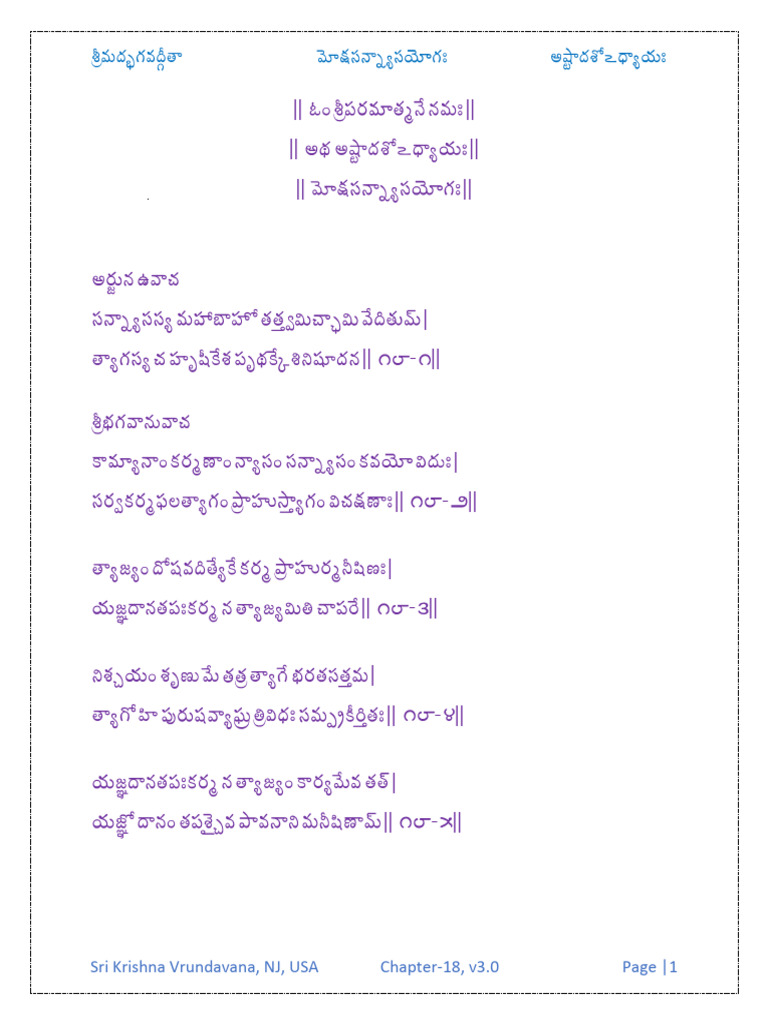 శ్రీమద్భగవద్గీతా మోక్షసన్న్యాసయోగః అష్టాదశోఽధ్యాయః
|| ఓం శ్రీపరమాత్మనే నమః||
|| అథ అష్టాదశోఽధ్యాయః||
|| మోక్షసన్న్యాసయోగః||
అర్జున ఉవాచ
సన్న్యాసస్య మహాబాహో తత్త్వమిచ్ఛామి వేదితుమ్|
త్యాగస్య చ హృషీకేశ పృథక్కేశినిషూదన|| ౧౮-౧||
శ్రీభగవానువాచ
కామ్యానాం కర్మణాం న్యాసం సన్న్యాసం కవయో విదుః|
సర్వకర్మఫలత్యాగం ప్రాహుస్త్యాగం విచక్షణాః|| ౧౮-౨||
త్యాజ్యం దోషవదిత్యేకే కర్మ ప్రాహుర్మనీషిణః|
యజ్ఞదానతపఃకర్మ న త్యాజ్యమితి చాపరే|| ౧౮-౩||
నిశ్చయం శృణు మే తత్ర త్యాగే భరతసత్తమ|
త్యాగో హి పురుషవ్యాఘ్ర త్రివిధః సమ్ప్రకీర్తితః|| ౧౮-౪||
యజ్ఞదానతపఃకర్మ న త్యాజ్యం కార్యమేవ తత్|
యజ్ఞో దానం తపశ్చైవ పావనాని మనీషిణామ్|| ౧౮-౫||
Sri Krishna Vrundavana, NJ, USA Chapter-18, v3.0 Page |1